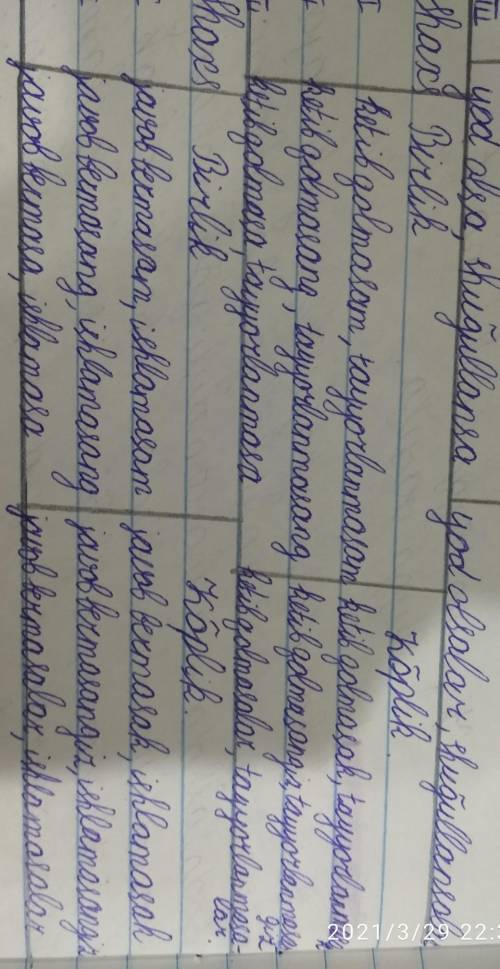 III yod olsa, shuğullansa yod olsalar, shuğullansa
shaxs Birlik Kõplik
I ketib qolmasam, tayyorlanmasam ketib qolmasak, tayyorlanma
ketib qolmasang, tayyorlanmasang ketib qolmasangiz, tayyorlanmasan
giz
ketib qolmasa, tayyorlanmasa ketib qolmasalar, tayyorlanmasa-
lar.
shaxs Birlik Kõplik.
javob bermasam, ishlamasam javob bermasak, ishlamasak
javob bermasang, ishlamasang javob bermasangiz, ishlamasangiz
javob bermasa, ishlamasa javob bermasalar, ishlamasalar
2021/3/29 22:3